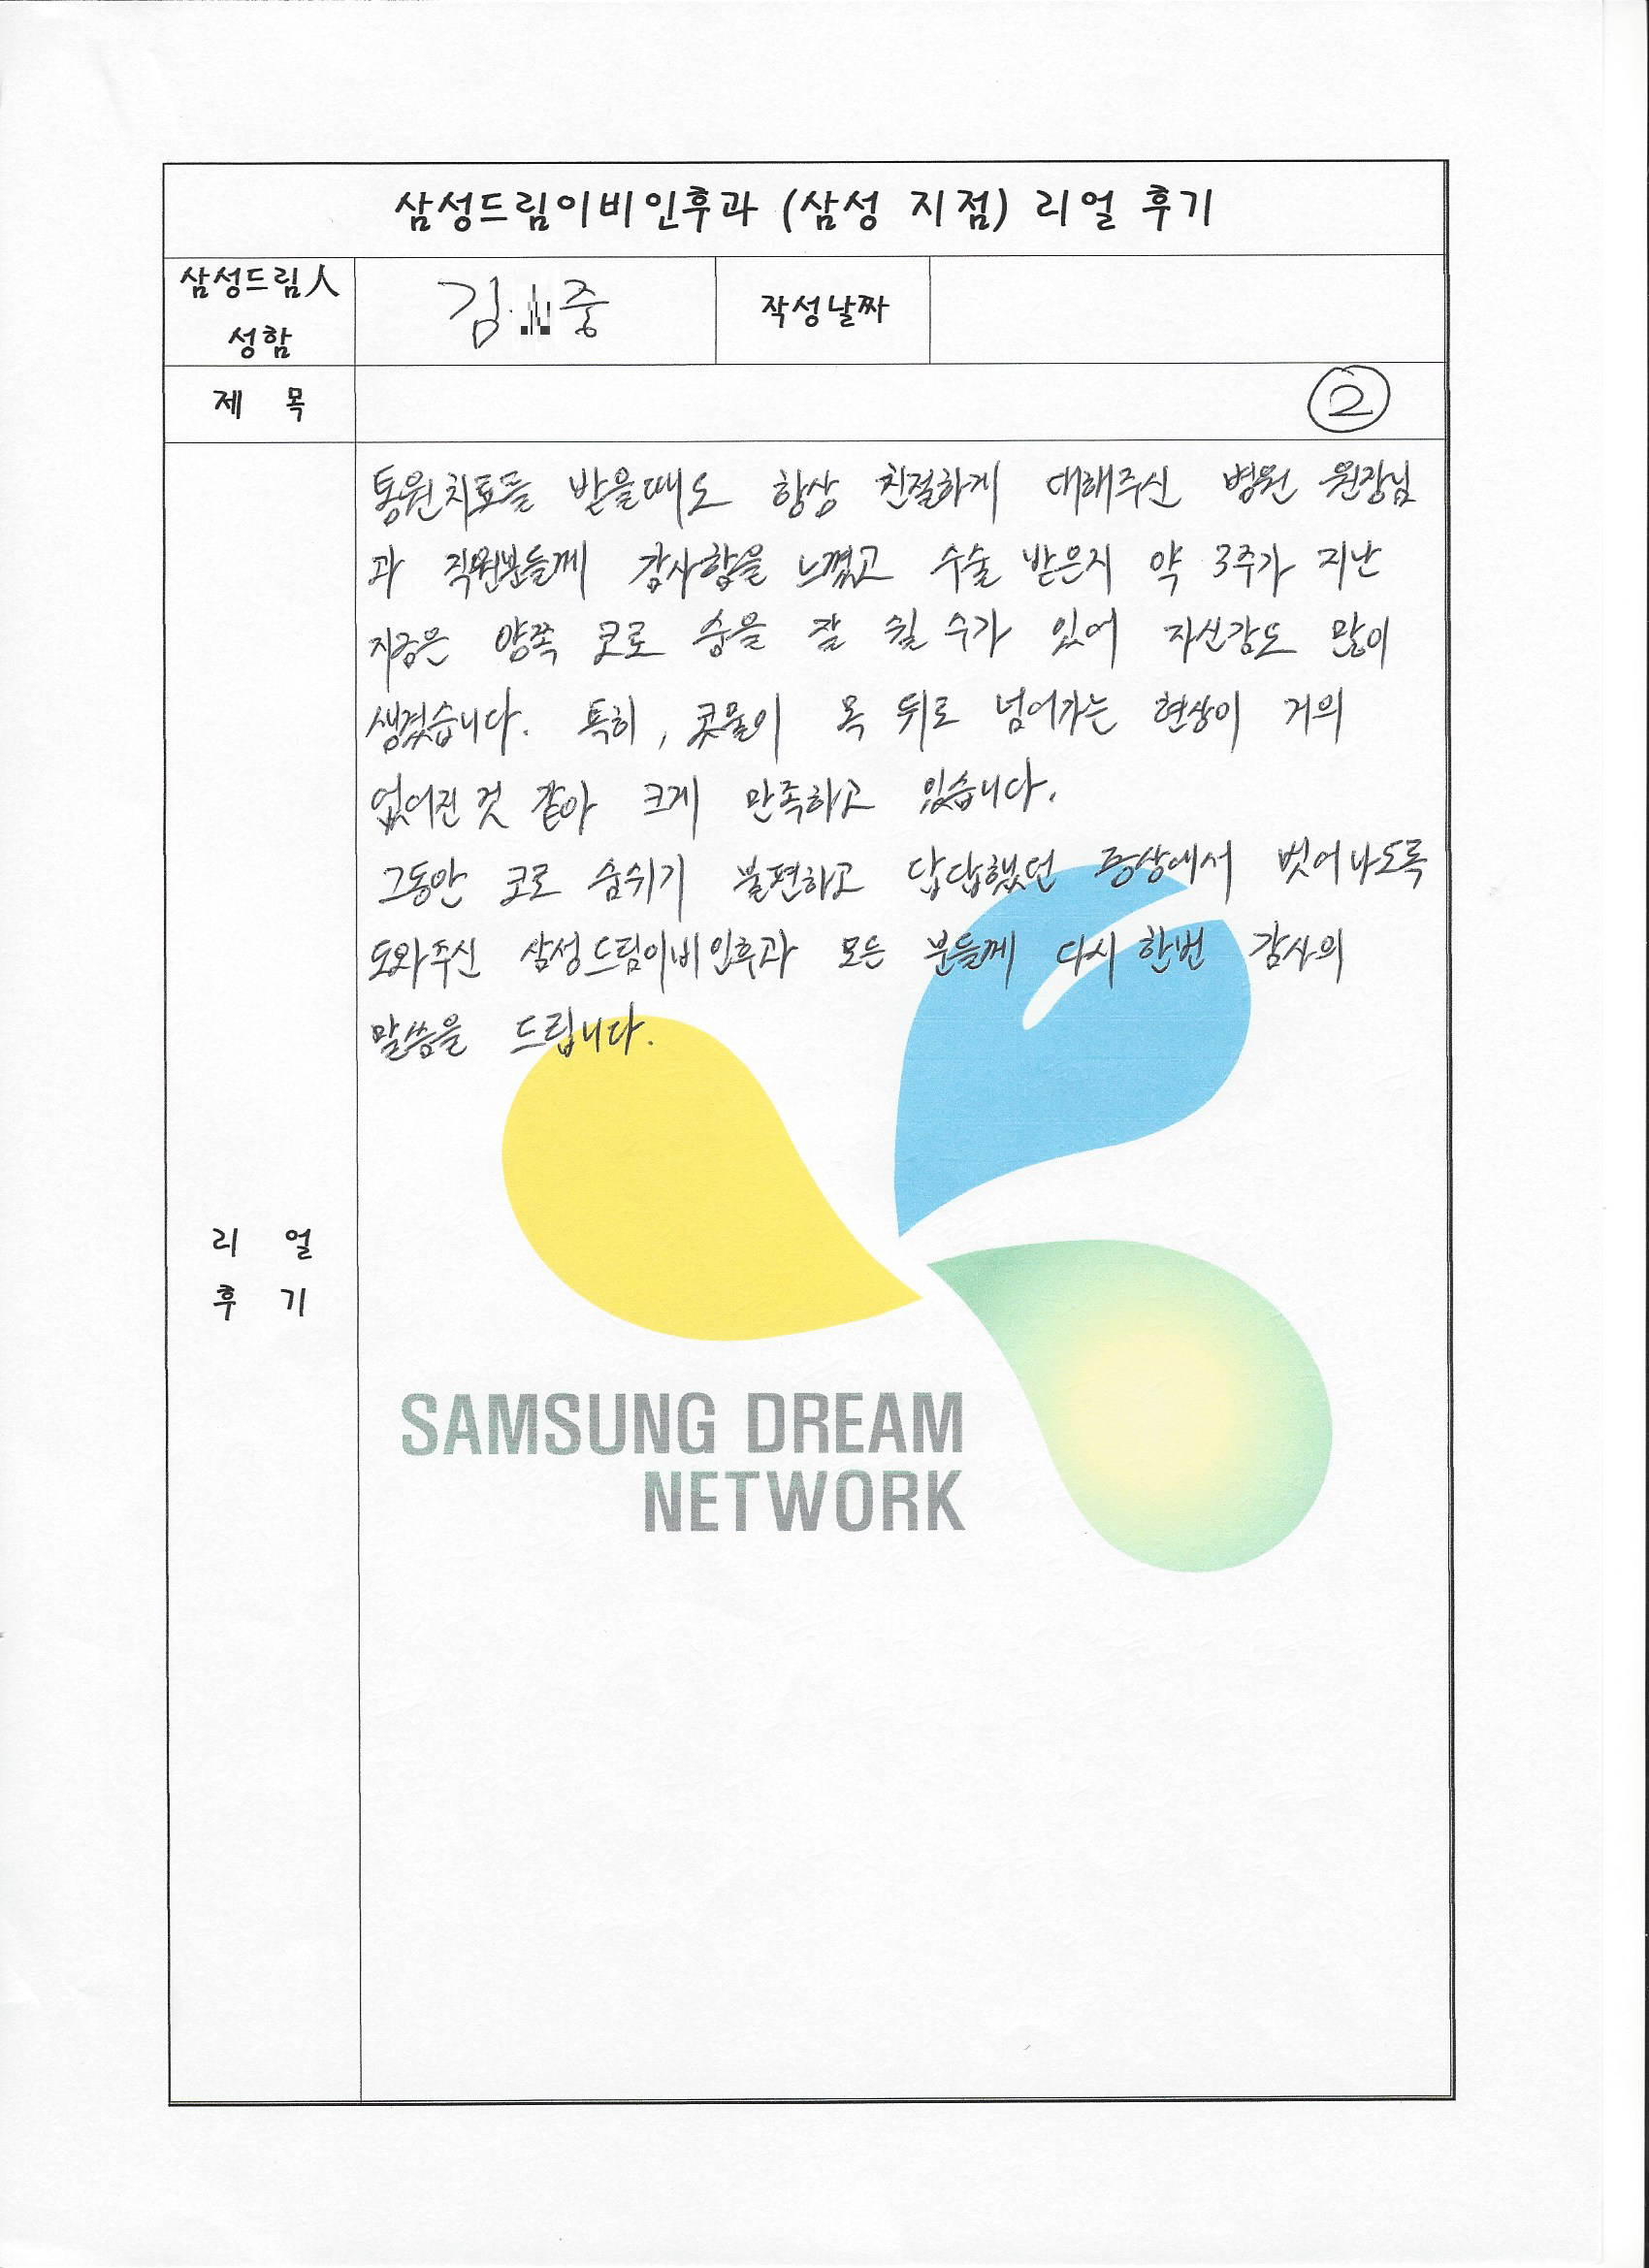 삼성드림이비인후과 (삼성 지점) 리얼 후기
삼성드림人
성함
김 중
작성날짜
제 목
②
통원치료를 받을때도 항상 친절하게 대해주신 병원 원장님
과 직원분들께 감사함을 느꼈고 수술 받은지 약 3주가 지난
지금은 양쪽 코로 숨을 잘 쉴 수가 있어 자신감도 많이
생겼습니다. 특히, 콧물이 목 뒤로 넘어가는 현상이 거의
없어진 것 같아 크게 만족하고 있습니다.
그동안 코로 숨쉬기 불편하고 답답했던 증상에서 벗어나도록
도와주신 삼성드림이비인후과 모든 분들께 다시 한번 감사의
말씀을 드립니다.
리 얼
후 기
SAMSUNG DREAM
NETWORK